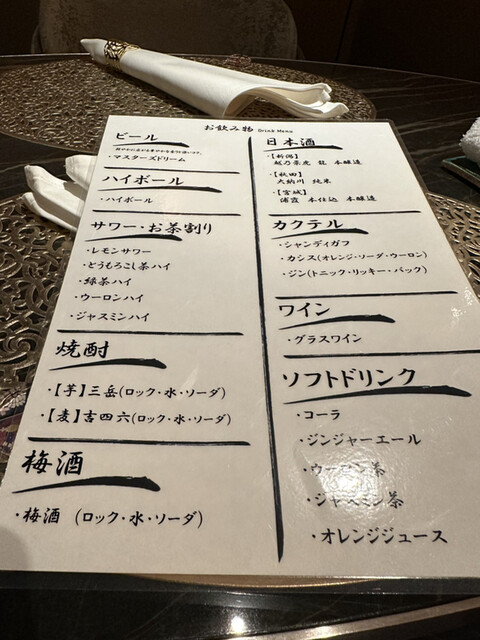 お飲み物 Drink Menu
ビール
・マスターズドリーム
ハイボール
・ハイボール
サワー・お茶割り
・レモンサワー
・どうもろこし茶ハイ
・緑茶ハイ
・ウーロンハイ
・ジャスミンハイ
焼酎
・【芋】三岳(ロック・水・ソーダ)
・【麦】吉四六(ロック・水・ソーダ)
梅酒
・梅酒 (ロック・水・ソーダ)
日本酒
・【新潟】
越乃景虎 龍 本醸造
・【秋田】
大納川 純米
・【宮城】
浦霞 本仕込 本醸造
カクテル
・シャンディガフ
・カシス(オレンジ・ソーダ・ウーロン)
・ジン(トニック・リッキー・バック)
ワイン
・グラスワイン
ソフトドリンク
・コーラ
・ジンジャーエール
・ウーロン茶
・ジャスミン茶
・オレンジジュース